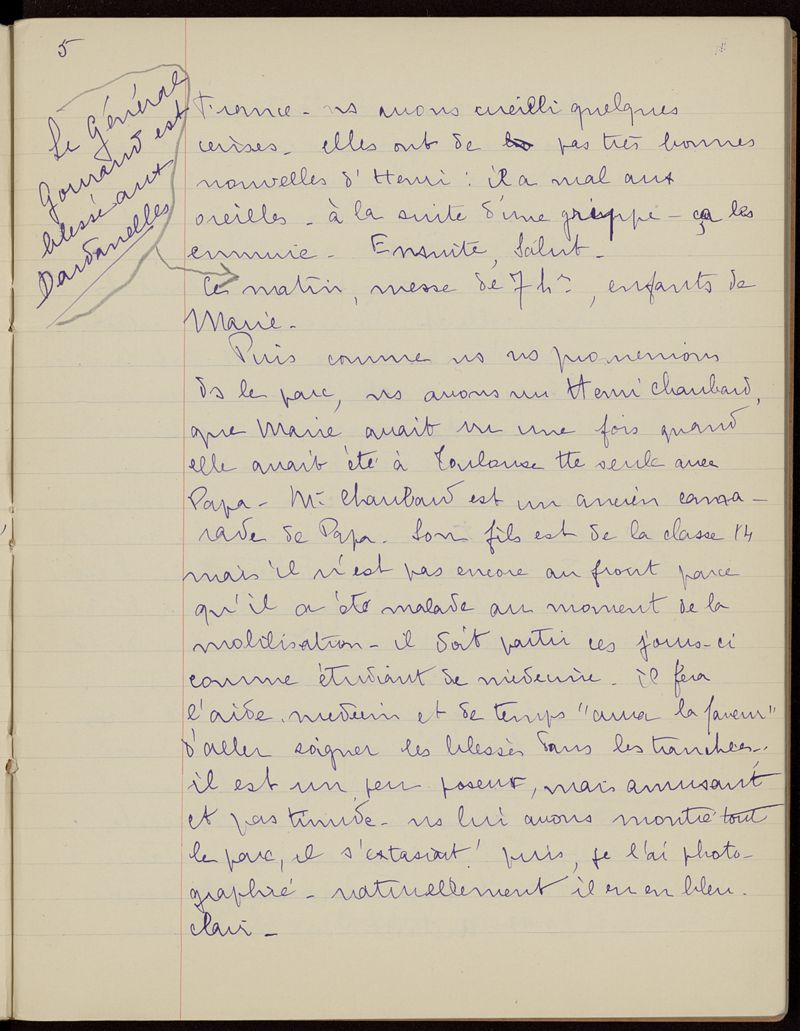 5
Le Général
Gouraud est
blessé aux
Dardanelles
France - ns avons cueilli quelques
cerises - elles ont de pas très bonnes
nouvelles d'Henri : il a mal aux
oreilles - à la suite d'une grippe - ça les
ennuie - Ensuite, Salut -
Ce matin, messe de 7 hrs, enfants de
Marie -
Puis comme ns ns promenions
ds le parc, ns avons vu Henri Chaubard,
que Marie avait vu une fois quand
elle avait été à Toulouse tte seule avec
Papa - Mr Chaubard est un ancien cama-
rade de Papa. Son fils est de la classe 14
mais il n'est pas encore au front parce
qu'il a été malade au moment de la
mobilisation - il doit partir ces jours-ci
comme étudiant de médecine - il fera
l'aide-médecin et de temps "aura la faveur"
d'aller soigner les blessés dans les tranchées -
il est un peu poseur, mais amusant
et pas timide - ns lui avons montré tout
le parc, il s'extasiait ! puis, je l'ai photo-
graphié - naturellement il en en bleu
clair -